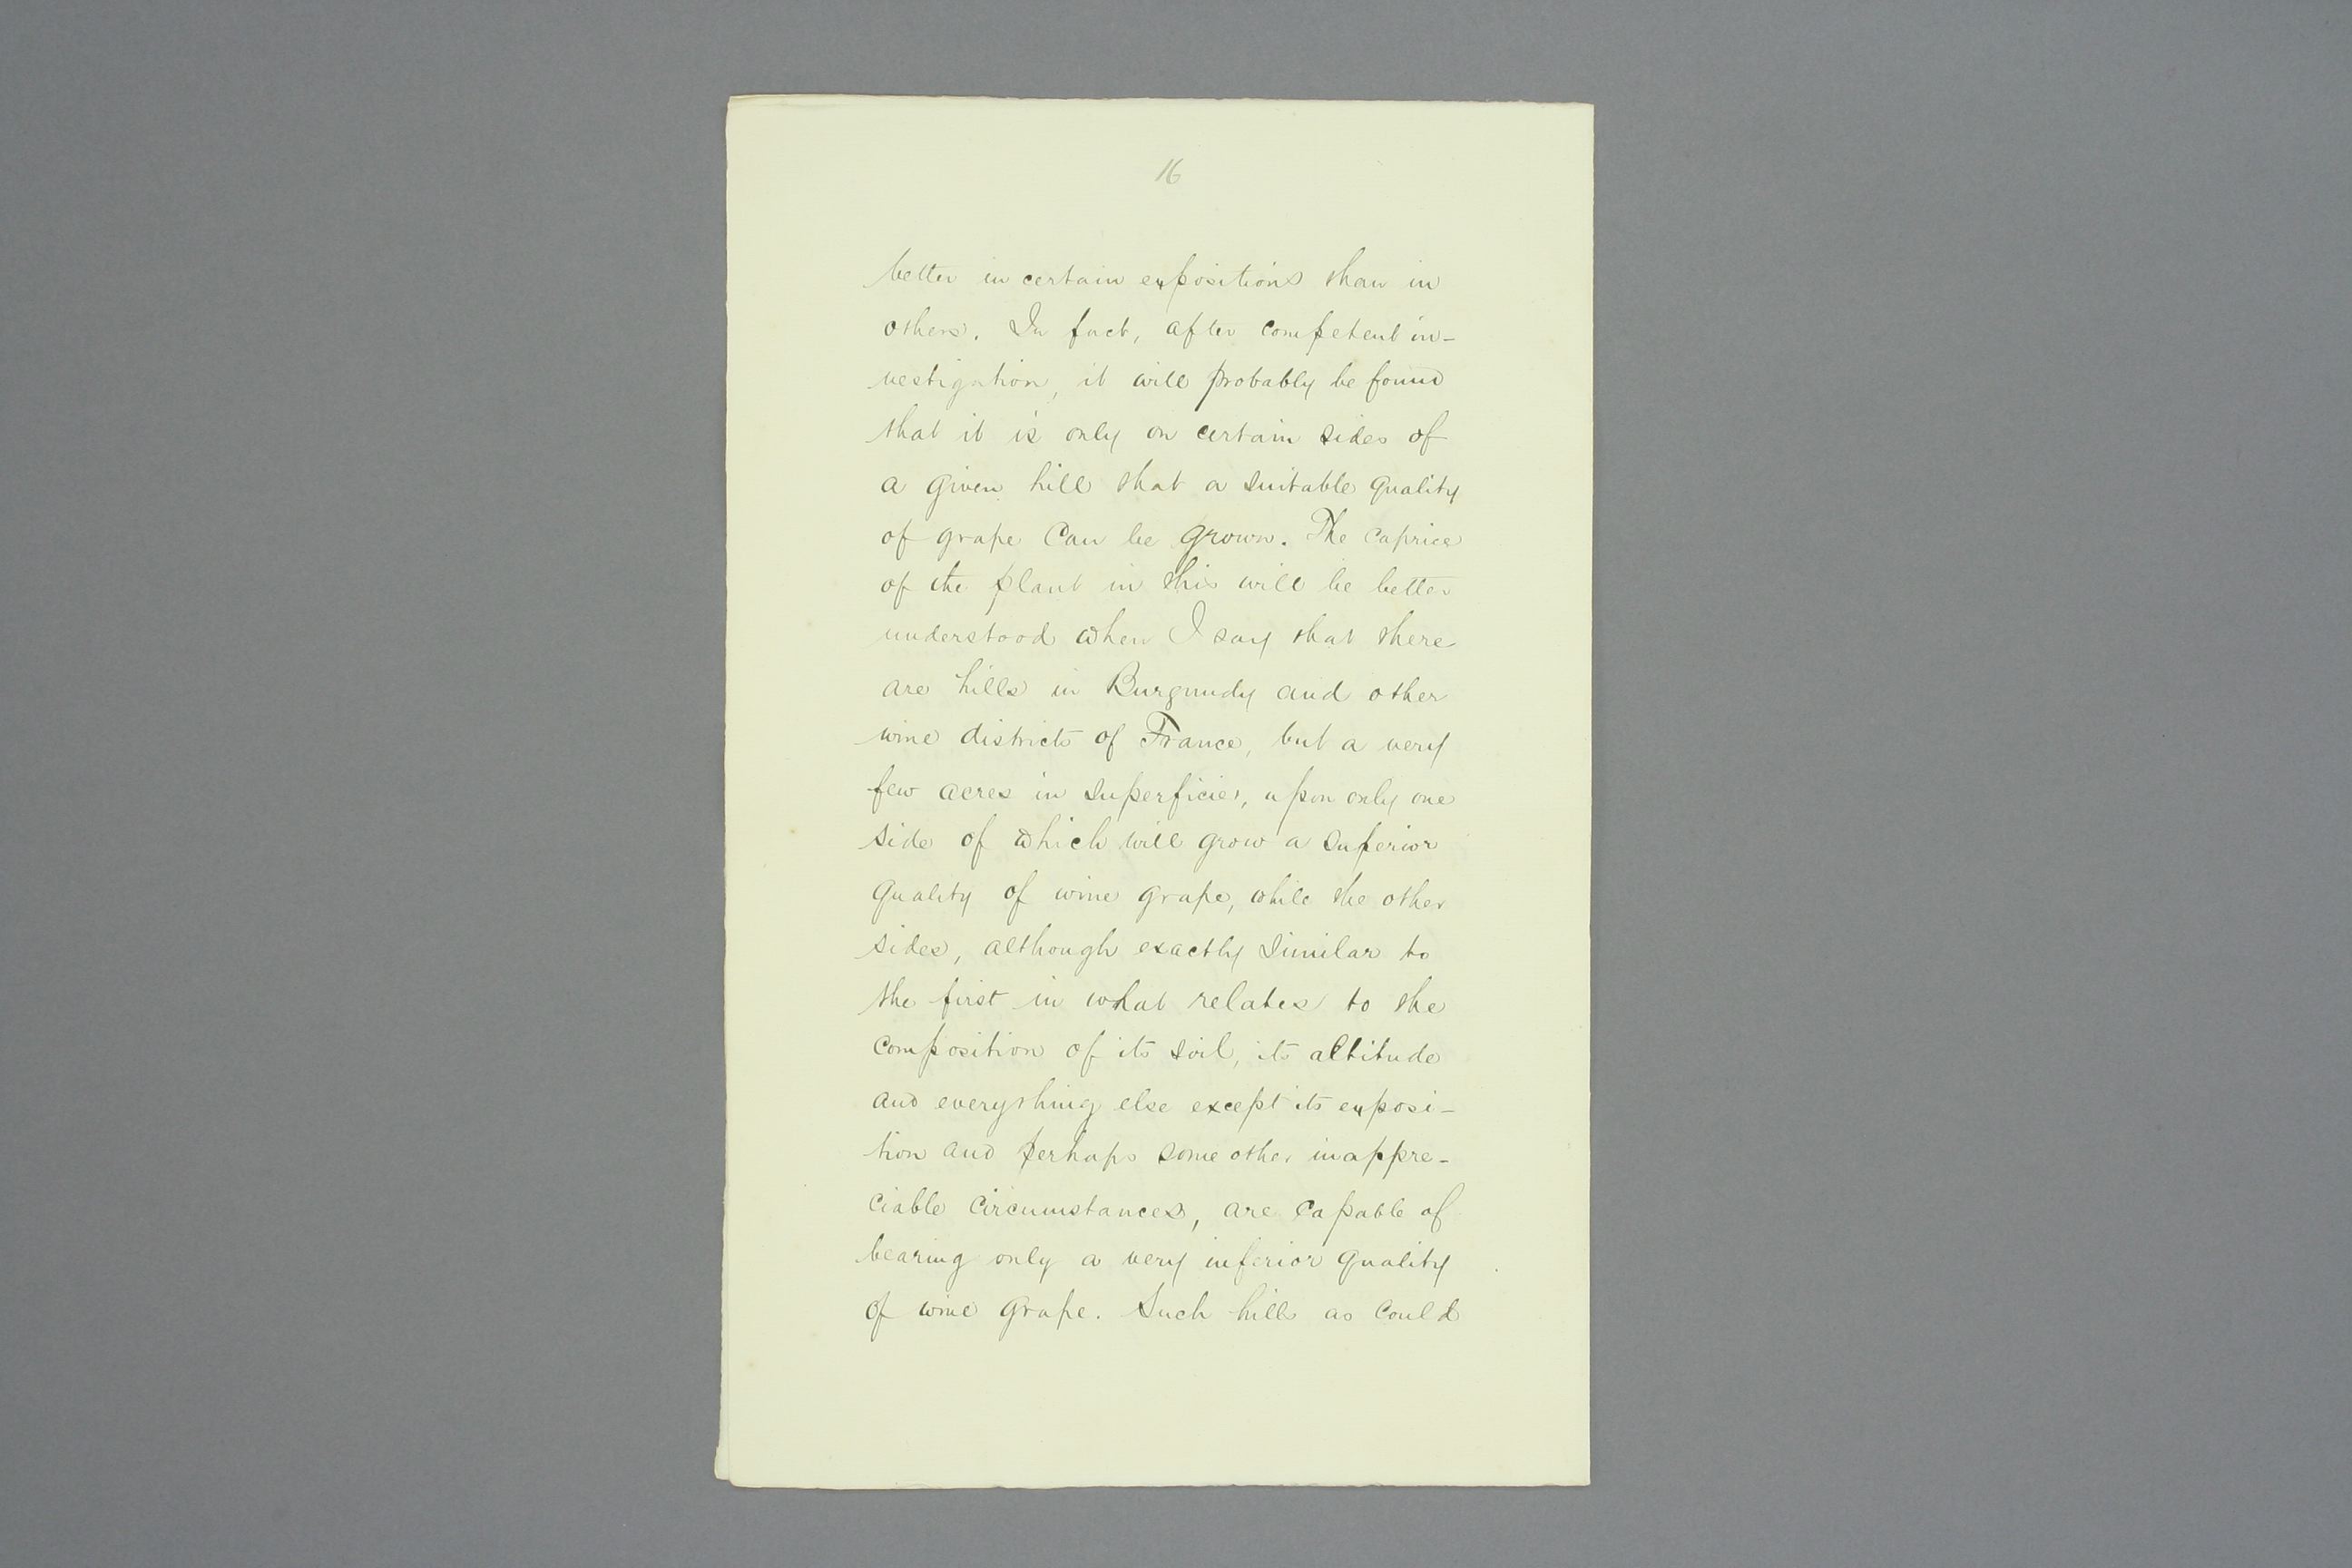 16
better in certain expositions than in
others. In fact, after competent in-
vestigation, it will probably be found
that it is only on certain sides of
a given hill that a suitable quality
of grape can be grown. The caprice
of the plant in this will be better
understood when I say that there
are hills in Burgundy and other
wine districts of France, but a very
few acres in superficies, upon only one
side of which will grow a superior
quality of wine grape, while the other
sides, although exactly similar to
the first in what relates to the
composition of its soil, its altitude
and everything else except its exposi-
tion and perhaps some other inappre-
ciable circumstances, are capable of
bearing only a very inferior quality
of wine grape. Such hills as could